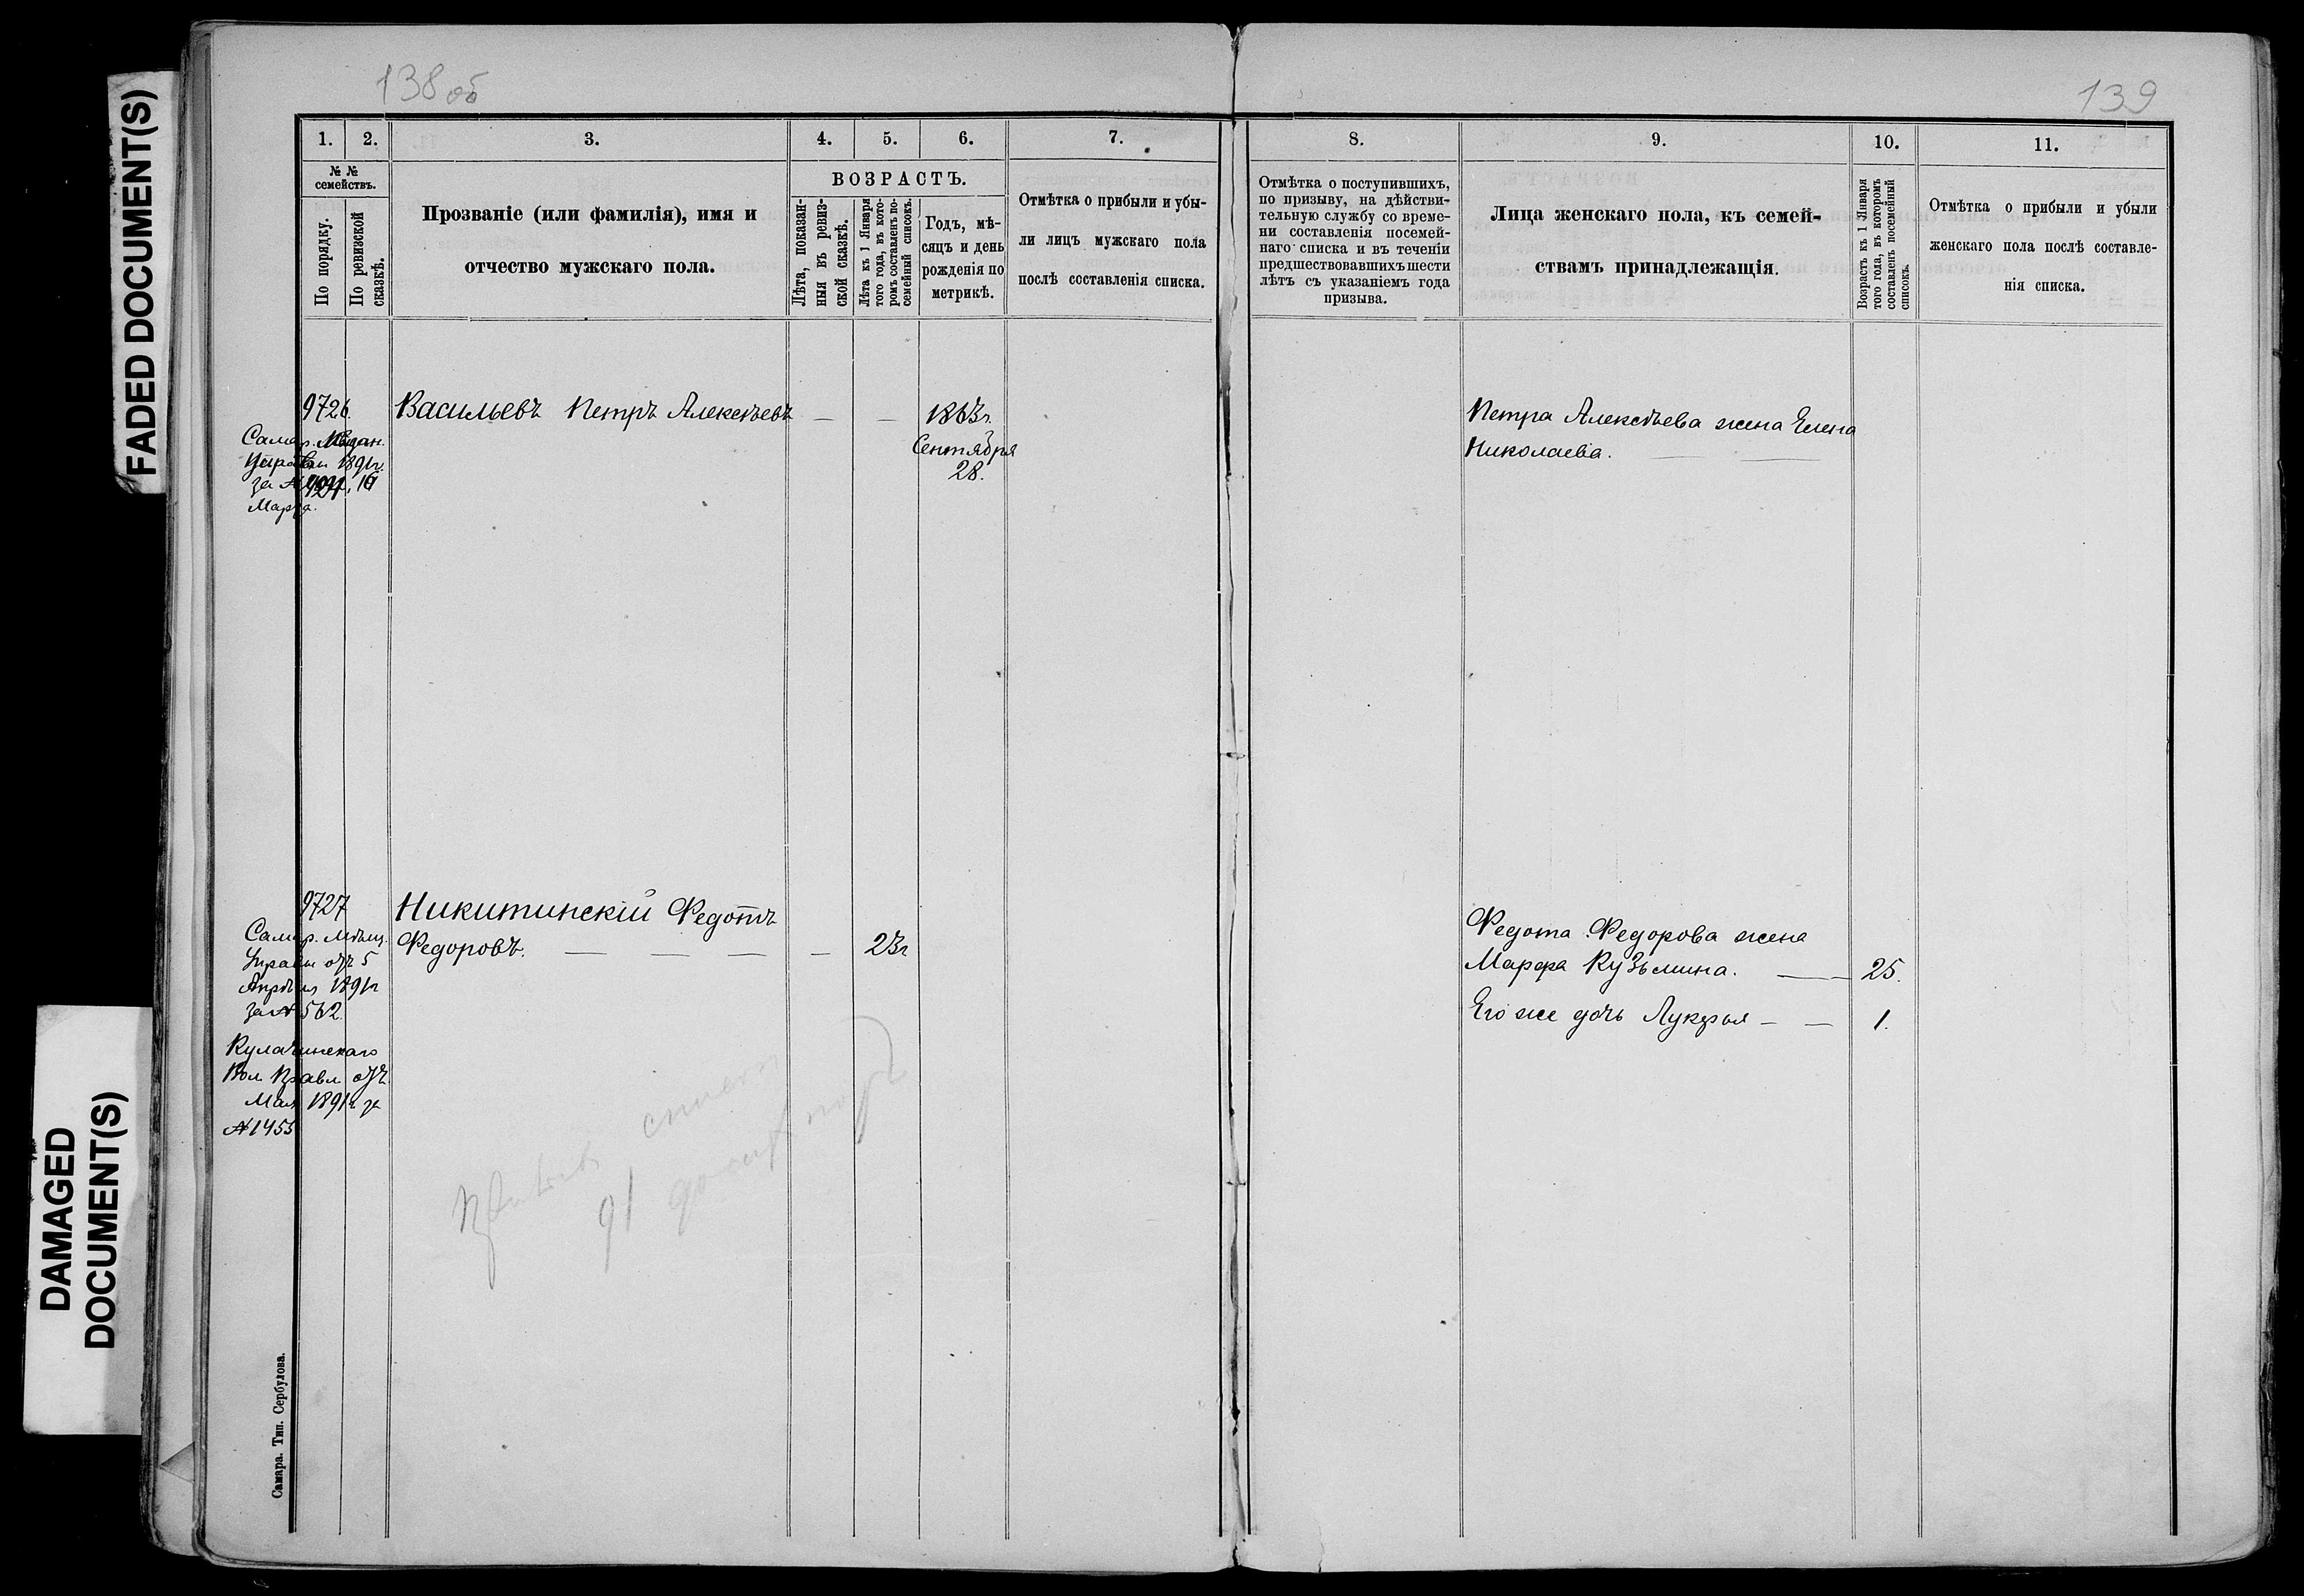 FADED DOCUMENT(S)
DAMAGED
DOCUMENT(S)
138 об
1.
2.
3.
4.
5.
6.
7.
№ №
семействъ.
По порядку.
По ревизской
сказкѣ.
Прозваніе (или фамилія), имя и
отчество мужскаго пола.
ВОЗРАСТЪ.
Лѣта, показан-
ныя въ ревиз-
ской сказкѣ.
Лѣта къ 1 Января
того года, въ кото-
ромъ составленъ по-
семейный списокъ.
Годъ, мѣ-
сяцъ и день
рожденія по
метрикѣ.
Отмѣтка о прибыли и убы-
ли лицъ мужскаго пола
послѣ составленія списка.
9726.
Самар. Мѣщан.
Управы 1891г.
за №
Марта.
Васильевъ Петръ Алексѣевъ — —
1863г.
Сентября
28.
9727
Самар. Мѣщ.
Управы отъ 5
Апрѣля 1891г
за № 562.
Вол. Правл отъ
Мая 1891г за
№ 1455
Никитинскій Федотъ
Федоровъ. — — — — 23г
91
Самара. Тип. Сербулова.
139
8.
9.
10.
11.
Отмѣтка о поступившихъ,
по призыву, на дѣйстви-
тельную службу со време-
ни составленія посемей-
наго списка и въ теченіи
предшествовавшихъ шести
лѣтъ съ указаніемъ года
призыва.
Лица женскаго пола, къ семей-
ствамъ принадлежащія.
Возрастъ къ 1 Января
того года, въ которомъ
составленъ посемейный
списокъ.
Отмѣтка о прибыли и убыли
женскаго пола послѣ составле-
нія списка.
Петра Алексѣева жена Елена
Николаева. — —
Федота Федорова жена
Марфа Кузьмина. — 25.
Его же дочь Лукерья — — 1.